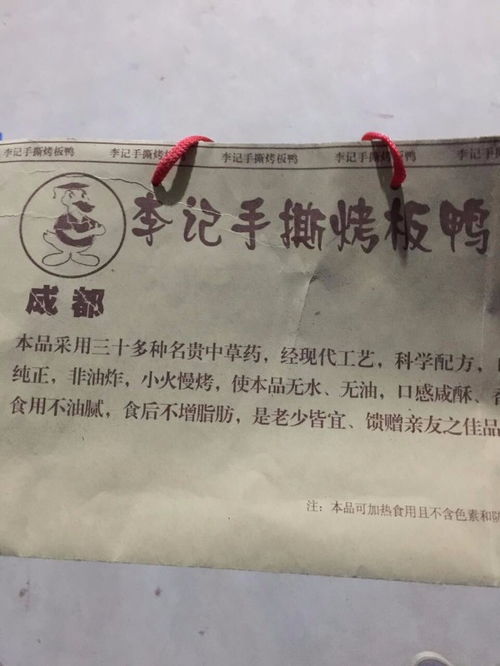 李记手撕烤板鸭 李记手撕烤板鸭 李记手撕烤板鸭 李记手撕烤板鸭 李记手
李记手撕烤板鸭
成都
本品采用三十多种名贵中草药，经现代工艺，科学配方，
纯正，非油炸，小火慢烤，使本品无水、无油，口感咸酥、
食用不油腻，食后不增脂肪，是老少皆宜、馈赠亲友之佳品
注：本品可加热食用且不含色素和